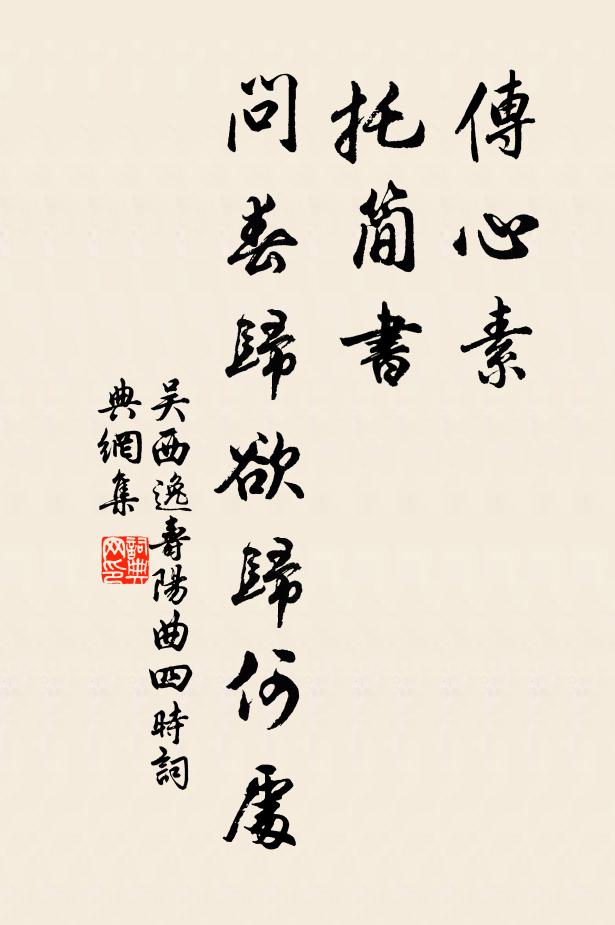 傳心素
托簡書
問春歸欲歸何處
吴西逸壽陽曲四時詞
典網集
詞典
网印